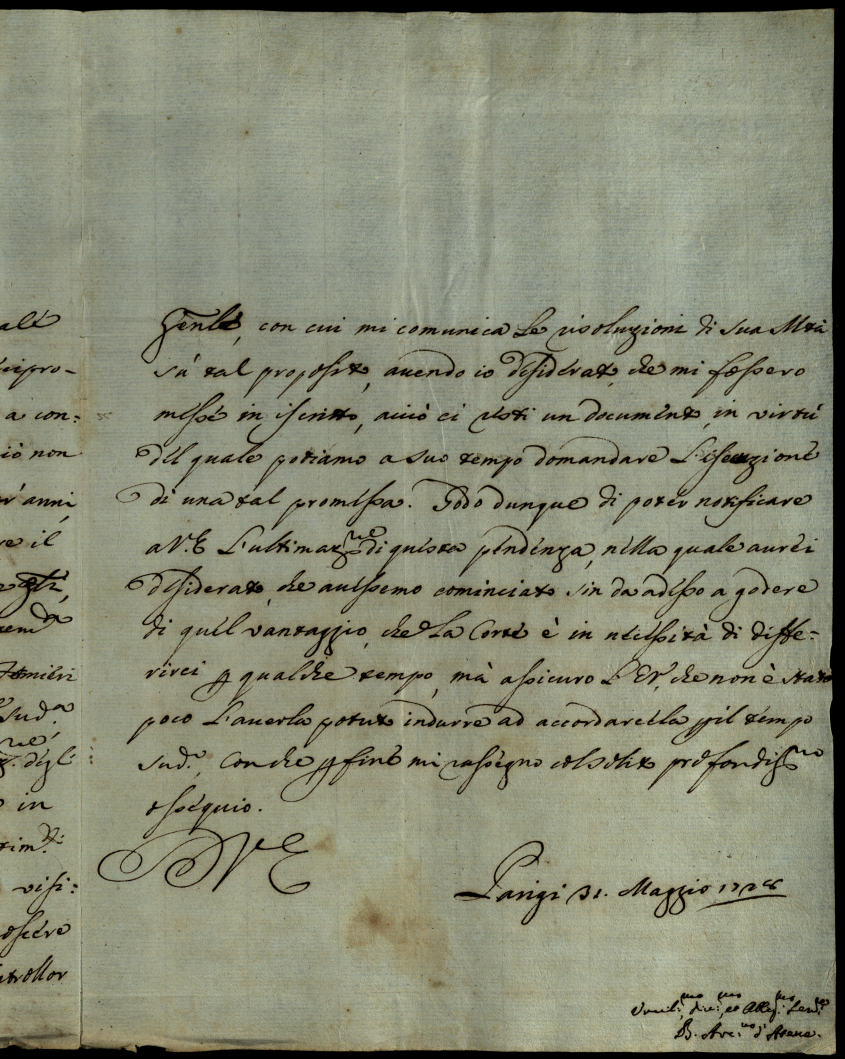 alé
cipro-
a con:
iò non
r'anni
re il
tem.da
sud.a
digl'
in
tim.
visi:
oscere
trollor
Genle, con cui mi comunica le risoluzioni di sua Mtà
sù tal proposito, avendo io desiderato, che mi fossero
messe in iscritto, acciò ci resti un documento, in virtù
del quale potiamo a suo tempo domandare l'esecuzione
di una tal promessa. Godo dunque di poter notificare
a V.E. l'ultimaz.ne di questa pendenza, nella quale aurei
desiderato, che auessemo cominciato sin da adesso a godere
di quel vantaggio, che la Corte è in necessità di diffe-
rirci p qualche tempo, mà assicuro l'E.V., che non è stato
poco l'auerla potuta indurre ad accordarcella p il tempo
sud.o, con che p fine mi rassegno col solito profondiss.mo
ossequio.
D V.E.
Parigi 31. Maggio 1728
Umili.mo, div.mo, ed Obblig.mo Serv.re
B. Arci.vo d'Atene.